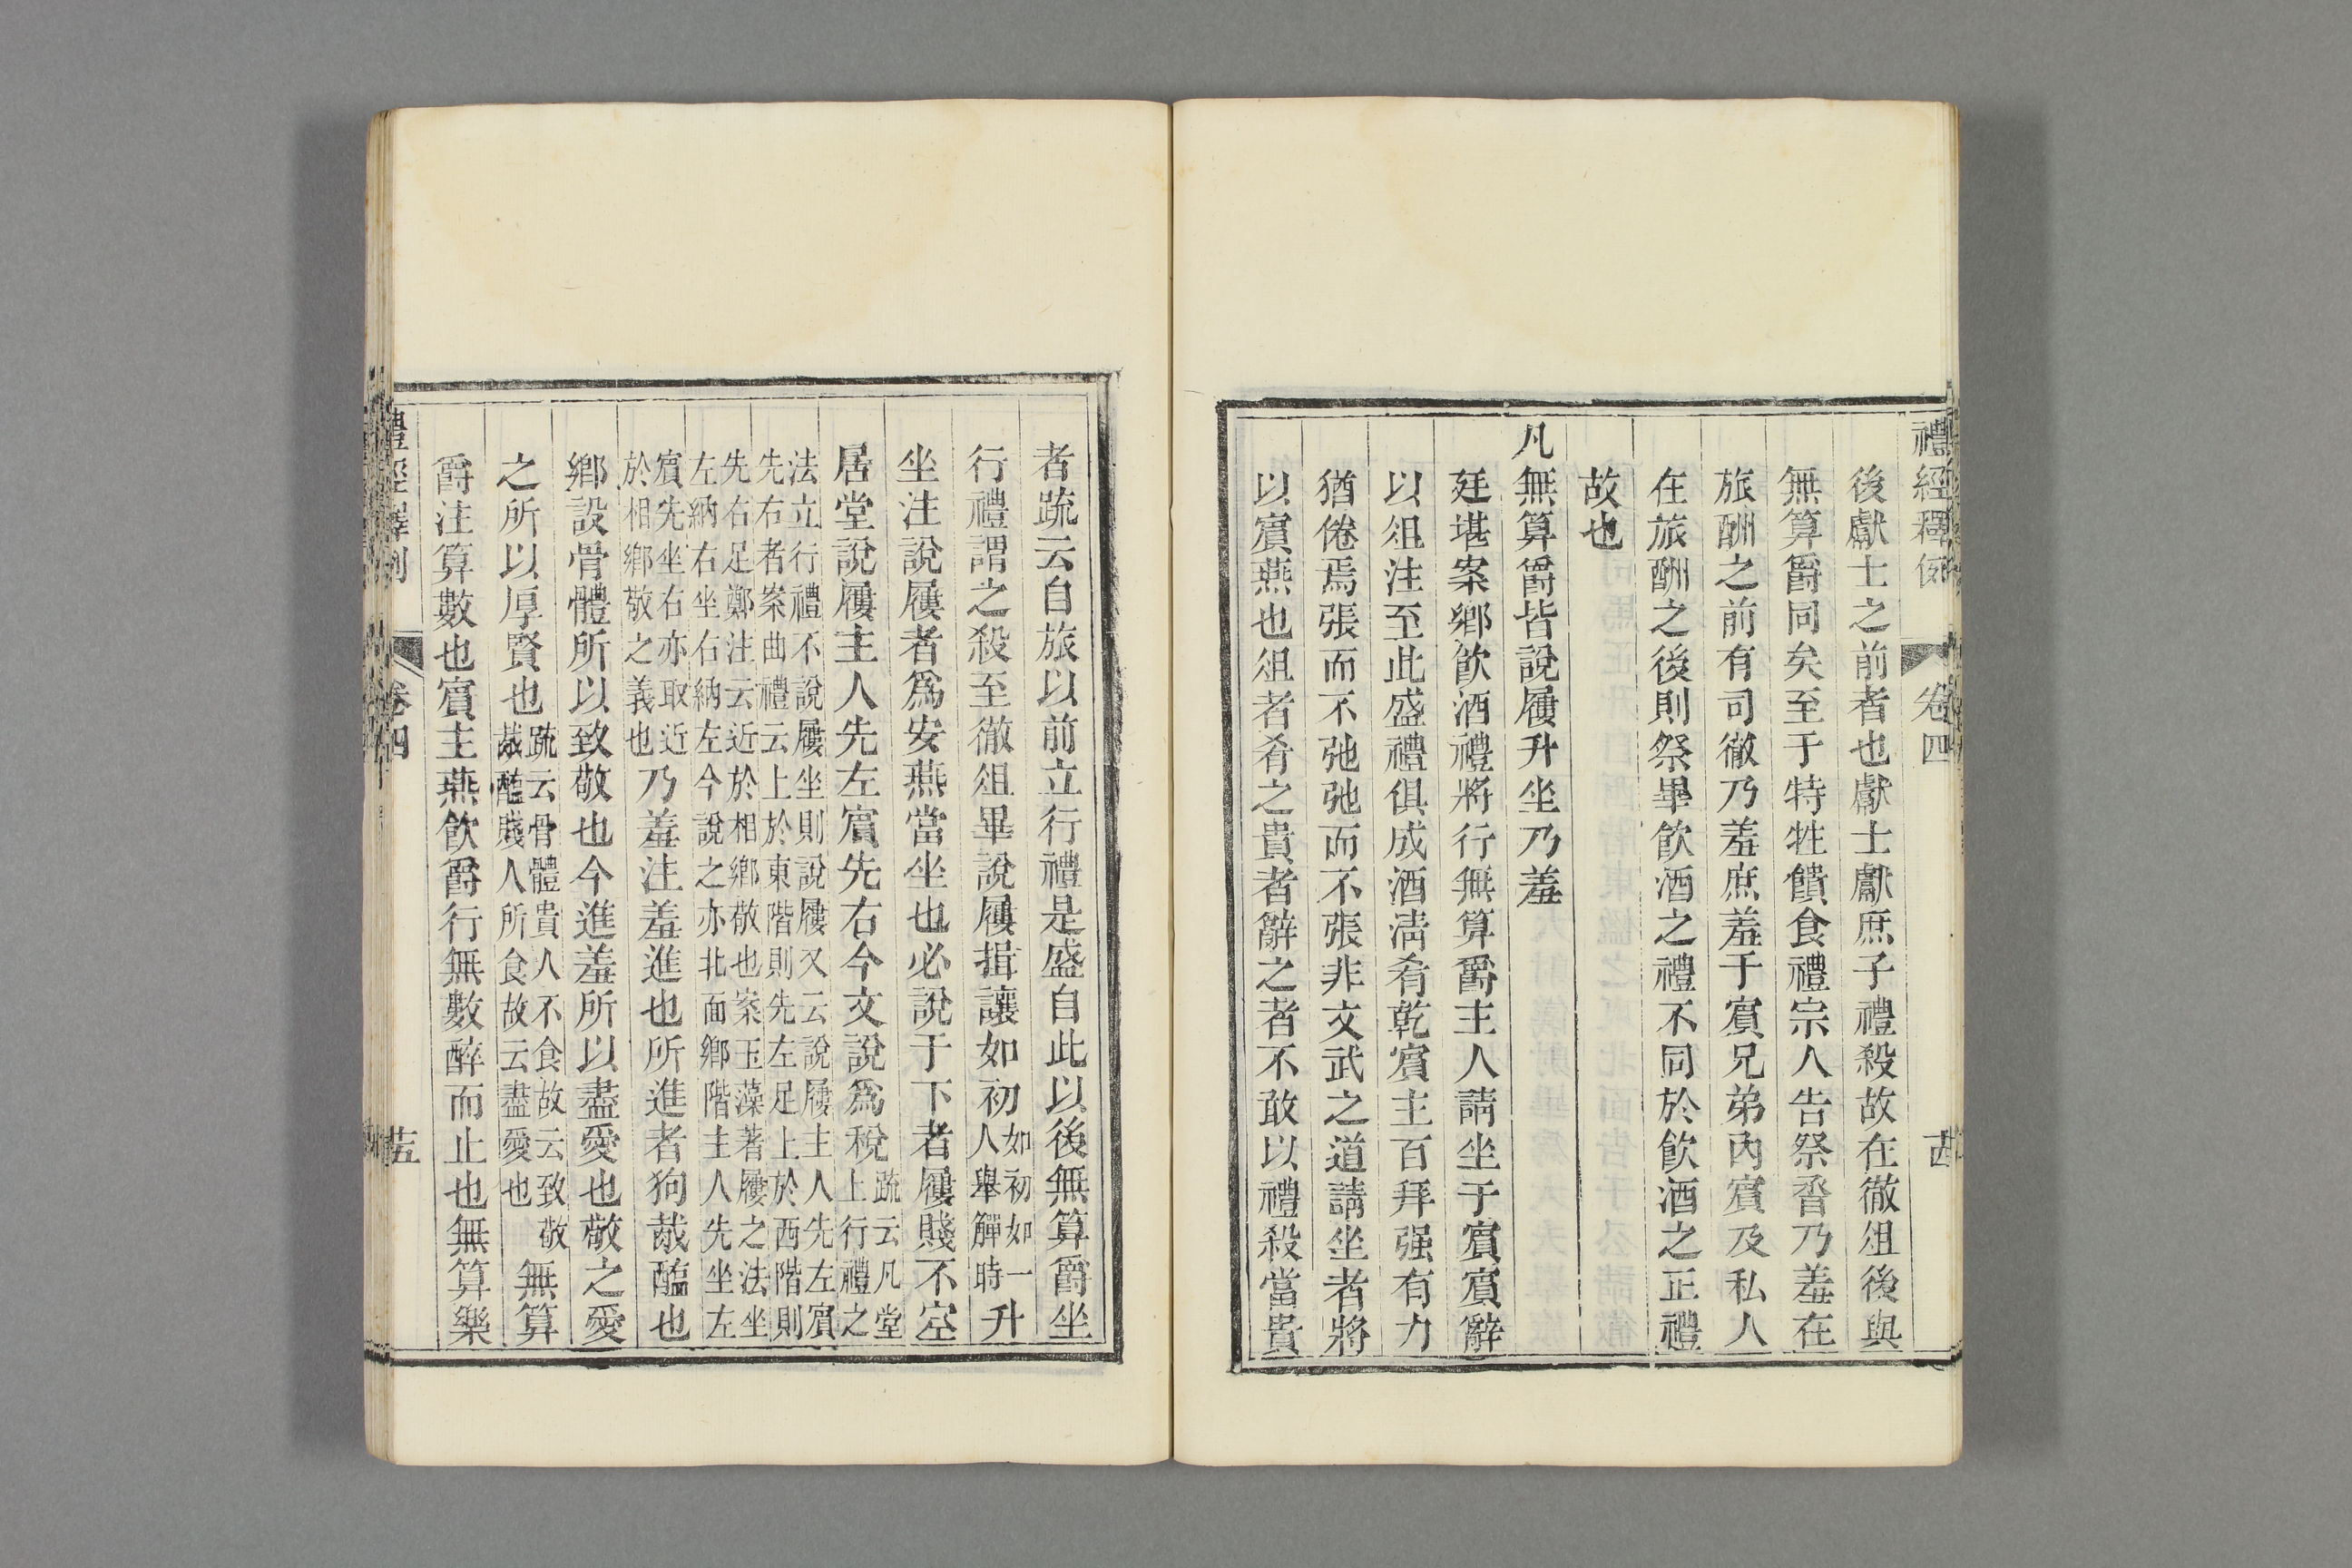 禮經釋例 卷四 十四
後獻士之前者也獻士獻庶子禮殺故在徹俎後與
無算爵同矣至于特牲饋食禮宗人告祭脀乃羞在
旅酬之前有司徹乃羞庶羞于賓兄弟內賓及私人
在旅酬之後則祭畢飲酒之禮不同於飲酒之正禮
故也
凡無算爵皆說屨升坐乃羞
廷堪案鄉飲酒禮將行無算爵主人請坐于賓賓辭
以俎注至此盛禮俱成酒淸肴乾賓主百拜强有力
猶倦焉張而不弛弛而不張非文武之道請坐者將
以賓燕也俎者肴之貴者辭之者不敢以禮殺當貴
者疏云自旅以前立行禮是盛自此以後無算爵坐
行禮謂之殺至徹俎畢說屨揖讓如初如初如一人舉觶時升
坐注說屨者爲安燕當坐也必說于下者屨賤不空
居堂說屨主人先左賓先右今文說爲稅疏云凡堂上行禮之
法立行禮不說屨坐則說屨又云說屨主人先左賓
先右者案曲禮云上於東階則先左足上於西階則
先右足鄭注云近於相鄉敬也案玉藻著屨之法坐
左納右坐右納左今說之亦北面鄉階主人先坐左
賓先坐右亦取近於相鄉敬之義也乃羞注羞進也所進者狗胾醢也
鄉設骨體所以致敬也今進羞所以盡愛也敬之愛
之所以厚賢也疏云骨體貴人不食故云致敬胾醢賤人所食故云盡愛也無算
爵注算數也賓主燕飲爵行無數醉而止也無算樂
禮經釋例 卷四 十五